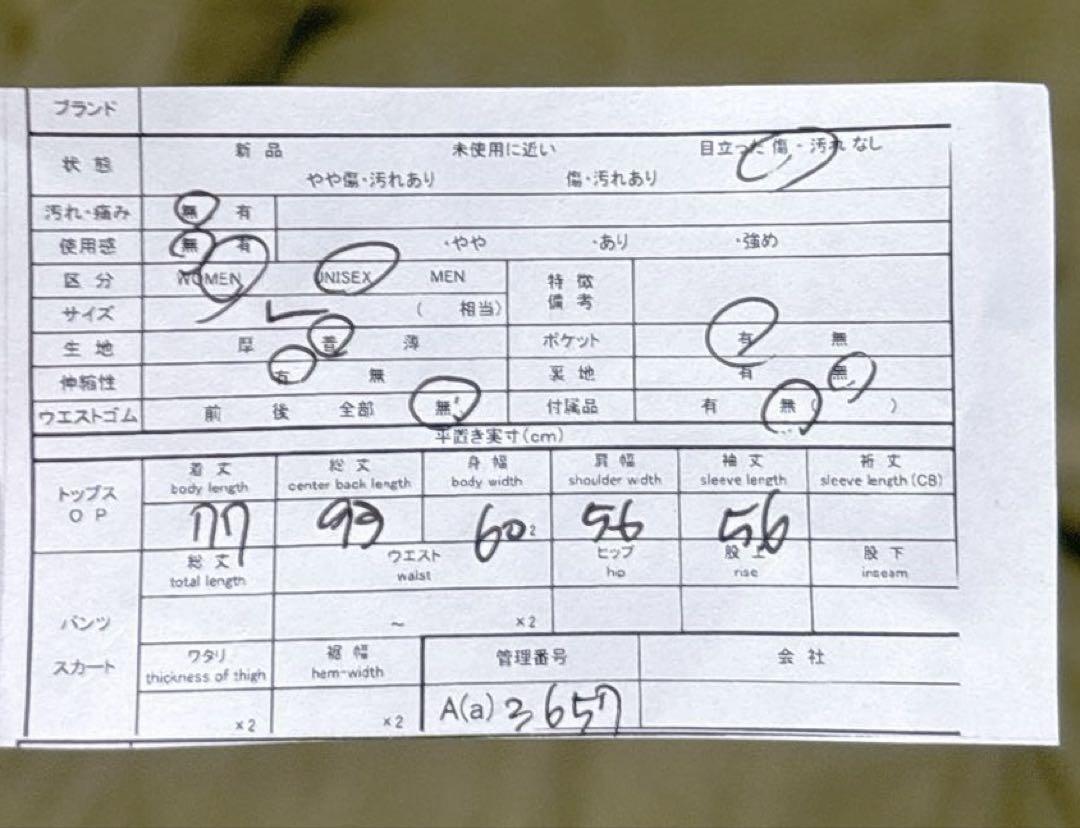 ブランド
状態 新品 未使用に近い 目立った傷・汚れなし
やや傷・汚れあり 傷・汚れあり
汚れ・痛み 無 有
使用感 無 有 ・やや ・あり ・強め
区分 WOMEN UNISEX MEN 特徴
備考
サイズ L ( 相当)
生地 厚 普 薄 ポケット 有 無
伸縮性 有 無 裏地 有 無
ウエストゴム 前 後 全部 無 付属品 有 無 ( )
平置き実寸(cm)
トップス
OP
着丈 総丈 身幅 肩幅 袖丈 裄丈
body length center back length body width shoulder width sleeve length sleeve length(CB)
77 93 60 2 56 56
総丈 ウエスト ヒップ 股上 股下
total length waist hip rise inseam
パンツ ~ ×2
スカート
ワタリ 裾幅 管理番号 会社
thickness of thigh hem-width
×2 ×2 A(a) 3657